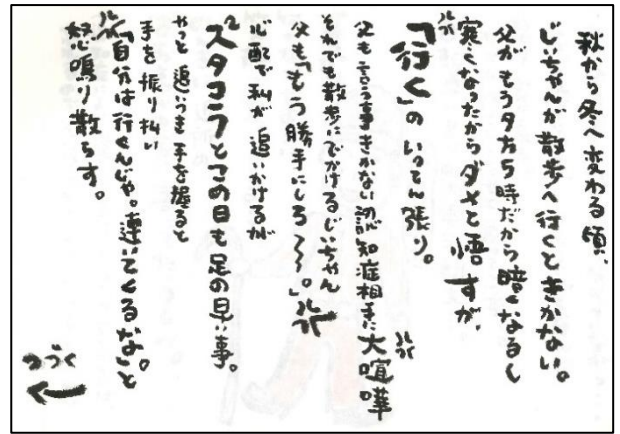 秋から冬へ変わる頃、
じいちゃんが散歩へ行くときかない。
父がもう夕方5時だから暗くなるし
寒くなったからダメと悟すが、
「行く」のいってん張り。
父も言う事きかない認知症相手に大喧嘩
それでも散歩にでかけるじいちゃん
父も「もう勝手にしろ〜〜。」
心配で私が追いかけるが
スタコラとこの日も足の早い事。
やっと追いつき手を握ると
手を振り払い
「自分は行くんじゃ。連いてくるな」と
怒鳴り散らす。
つづく
←